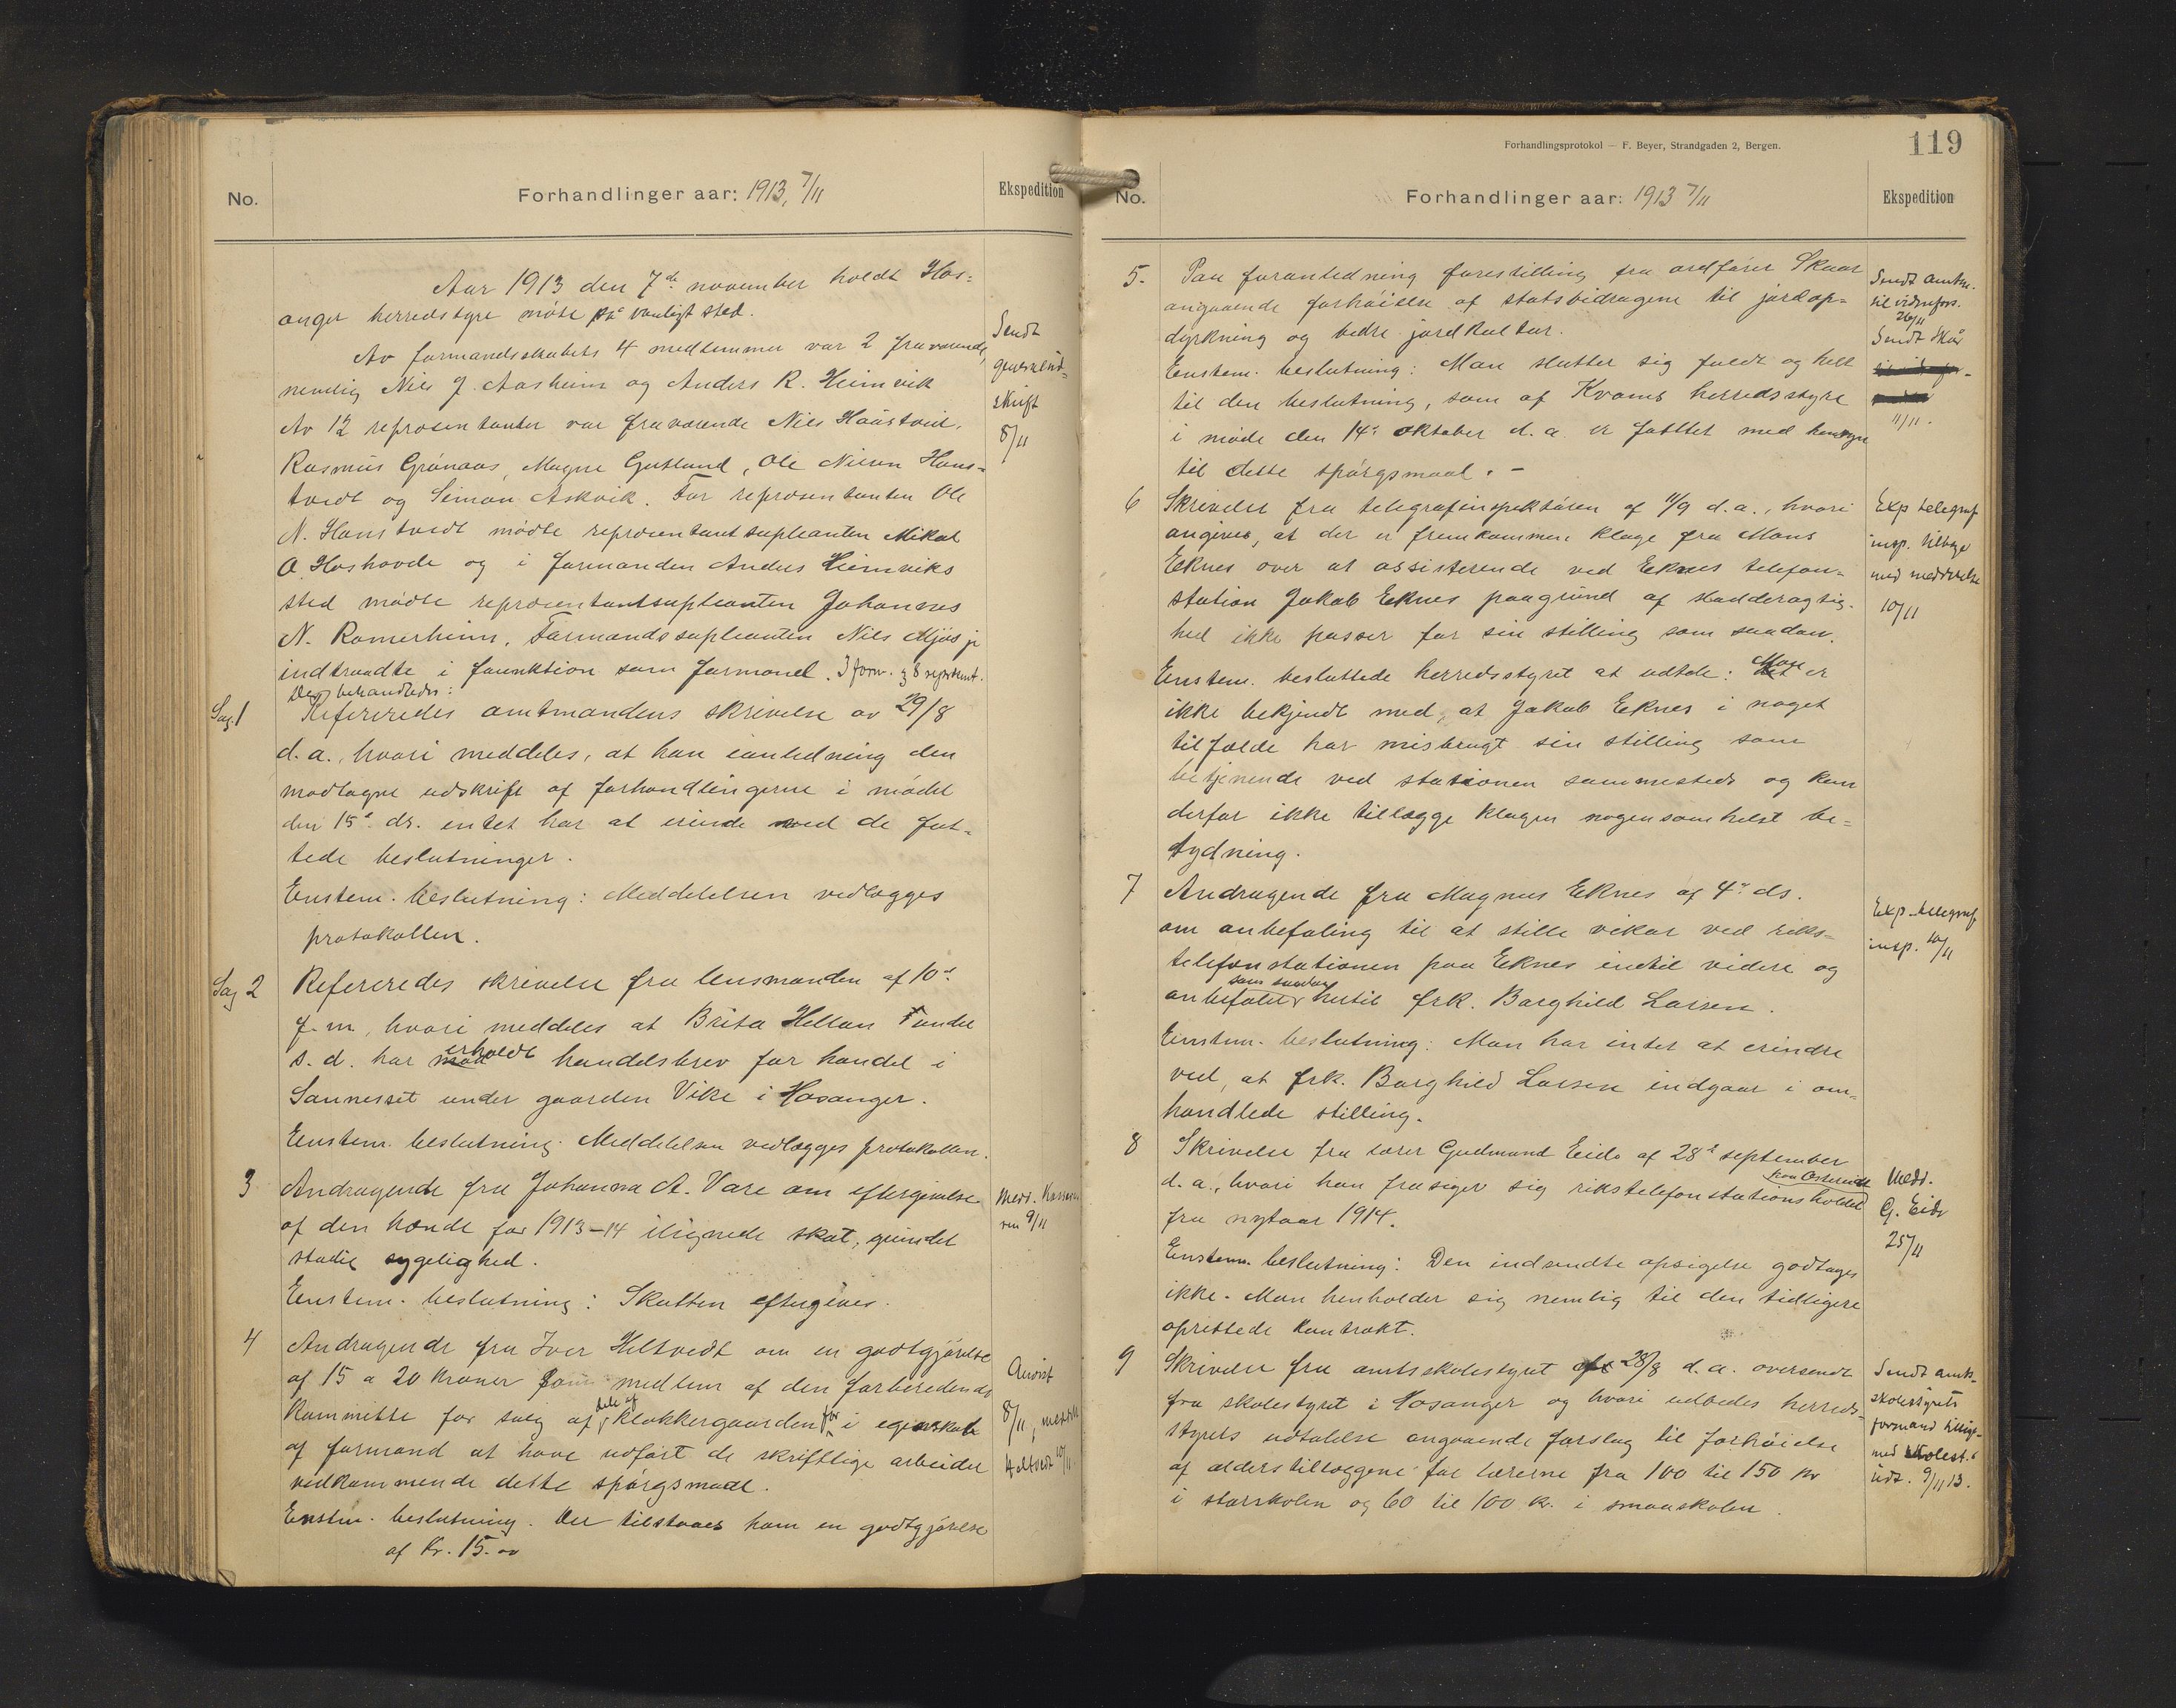 No.
Forhandlinger aar: 1913, 7/11
Ekspedition
Aar 1913 den 7de november holdt Hos-
anger herredsstyre möte på vanligt sted.
Av formandsskabets 4 medlemmer var 2 fraværende,
nemlig Nils J. Aasheim og Anders R. Heimvik
Av 12 repræsentanter var fraværende Nils
Rasmus Grönaas, Magne Gutland, Ole Nilsen Hans-
tvedt og Simon Askvik. For repræsentanten Ole
N. Hanstvedt mödte repræsentantsupleanten Mikal
O. Hoshovde og i formanden Anders Heimviks
sted mödte repræsentantsupleanten Johannes
N. Romerheim. Formandssupleanten Nils Mjös jr
indtraadte i funktion som formand. 3 form. og 8 repræsent.
Der behandledes:
Sendt
genpart
skrift
8/11
Sag 1
Refereredes amtmandens skrivelse av 29/8
d.a., hvori meddeles, at han ianledning den
modtagne udskrift af forhandlingerne i mödet
den 15d. ds. intet har at erindre med de fat-
tede beslutninger.
Enstem. beslutning: Meddelelsen vedlægges
protokollen.
Sag 2
Refereredes skrivelse fra lensmanden af 10d
f.m., hvori meddeles at Brita Hellan under
s.d. har erholdt handelsbrev for handel i
Sannesset under gaarden Vike i Hosanger.
Enstem. beslutning: Meddelelsen vedlægges protokollen.
3
Andragende fra Johanna A. Vare om eftergivelse
af den hænde for 1913-14 ilignede skat, grundet
stadig sygelighed.
Enstem. beslutning: Skatten eftergives.
Medd. Kasser
ren 9/11
4
Andragende fra Iver Heltvedt om en godtgjörelse
af 15 a 20 kroner som medlem af den forberedende
kommitte for salg af dele af klokkergaarden for i egenskab
af formand at have udfört de skriftlige arbeider
vedkommende dette spörgsmaal.
Enstem. beslutning. Der tilstaaes ham en godtgjörelse
af Kr. 15.00
Anvist
8/11, meddelt
Heltvedt 10/11
Forhandlingsprotokol — F. Beyer, Strandgaden 2, Bergen.
119
No.
Forhandlinger aar: 1913 7/11
Ekspedition
5.
Paa foranledning forestilling fra ordförer Skaar
angaaende forhöielse af statsbidragene til jordop-
dyrkning og bedre jordkultur.
Enstem. beslutning: Man slutter sig fuldt og helt
til den beslutning, som af Kvams herredsstyre
i möde den 14d oktober d.a. er fattet med hensyn
til dette spörgsmaal. -
Sendt amtm.
til vidrefors.
26/11
Sendt Skår
11/11.
6
Skrivelse fra telegrafinspektören af 11/9 d.a., hvori
angives, at der er fremkommen klage fra Mons
Eknes over at assisterende ved Eknes telefon-
station Jakob Eknes paagrund af sladderagtig-
hed ikke passer for sin stilling som saadan.
Enstem. besluttede herredsstyret at udtale: Man er
ikke bekjendt med, at Jakob Eknes i noget
tilfælde har misbrugt sin stilling som
betjenende ved stationen sammesteds og kan
derfor ikke tillægge klagen nogensomhelst be-
tydning.
Exp telegraf
insp. tilbage
med meddelelse
10/11
7
Andragende fra Magnus Eknes af 4d ds.
om anbefaling til at stille vikar ved riks-
telefonstationen paa Eknes indtil videre og
anbefaler som saadan hertil frk. Borghild Larsen.
Enstem. beslutning: Man har intet at erindre
ved, at frk. Borghild Larsen indgaar i om-
handlede stilling.
Exp. telegraf
insp. 10/11
8
Skrivelse fra lærer Gudmund Eide af 28d september
d.a., hvori han frasiger sig rikstelefonstationsholdet paa
fra nytaar 1914.
Enstem. beslutning: Den indsendte opsigelse godtages
ikke. Man henholder sig nemlig til den tidligere
oprettede kontrakt.
Medd.
G. Eide
25/11
9
Skrivelse fra amtsskolestyret af 28/8 d.a. oversendt
fra skolestyret i Hosanger og hvori udbedes herreds-
styrets udtalelse angaaende forslag til forhöielse
af alderstillæggene for lærerne fra 100 til 150 kr
i storskolen og 60 til 100 kr. i smaaskolen.
Sendt amts-
skolestyrets
formand tillige-
med skolest.s
udt. 9/11 13.